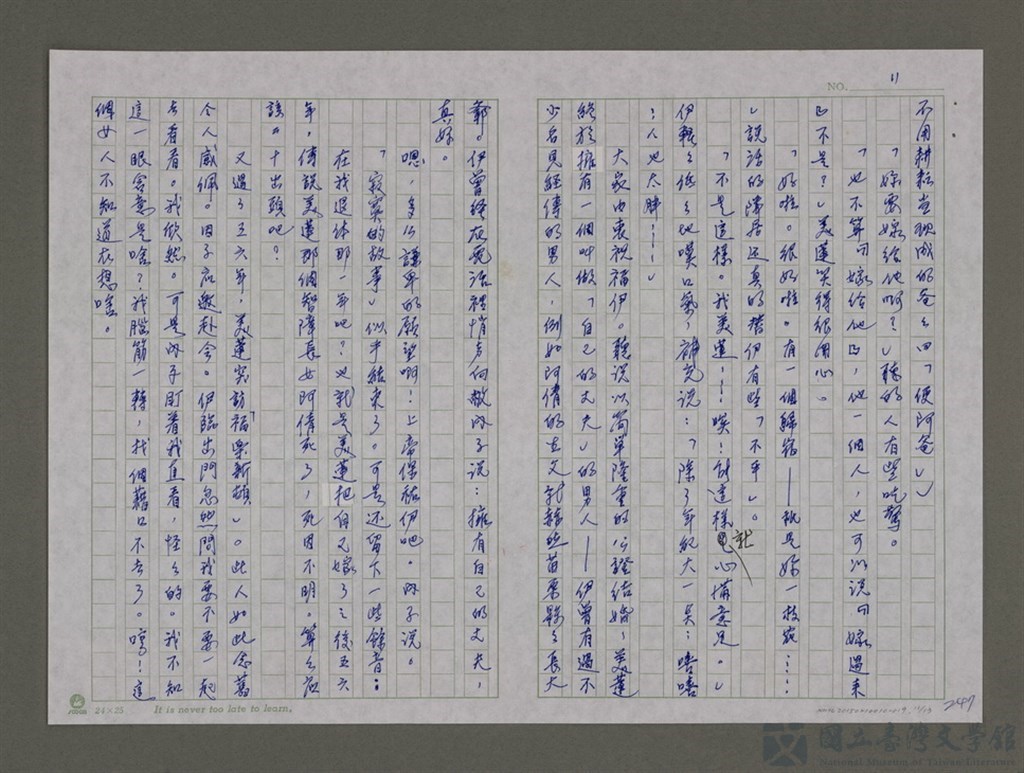 NO.
11
不用耕耘当現成的爸々四「便阿爸」」
「妳要嫁給他啊?」聽的人有些吃驚。
「也不算叫嫁給他口,他一個人,也可以說叫嫁過来
口不是?」美蓮笑得很開心。
「好啦。很好啦。有一個歸宿——祇是妳一枝花……
」說話的隣居还真的替伊有些「不平」。
「不是這樣。我美蓮……唉!能這樣就心滿意足。」
伊輕々低々地嘆口氣,補充說:「除了年紀大一点;嘻嘻
;人也太胖……」
大家由衷祝福伊。聽說以简單隆重的公證结婚、美蓮
終於擁有一個叫做「自己的丈夫」的男人——伊曾有過不
少名見經傳的男人,例如阿倩的生父就是苗栗縣々長大
輩。伊曾經在電話裡悄声向敝內子說:擁有自己的丈夫,
真好。
嗯,多么謙卑的願望啊!上帝保祐伊吧。內子說。
「寂寞的故事」似乎結束了。可是还留下一些餘音:
在我退休那一年吧?也就是美蓮把自己嫁了之後五六
年,傳說美蓮那個智障長女阿倩死了,死因不明。算々应
該二十出頭吧?
又過了五六年,美蓮突訪福「樂新頓」。此人如此念舊
令人感佩。內子应邀赴会。伊臨出門忽然問我要不要一起
去看看。我欣然。可是內子盯着我直看,怪々的。我不知
這一眼含意是啥?我腦筋一轉,找個藉口不去了。哼!這
個女人不知道在想啥。
24×25
It is never too late to learn.
247
國立臺灣文學館
National Museum of Taiwan Literature